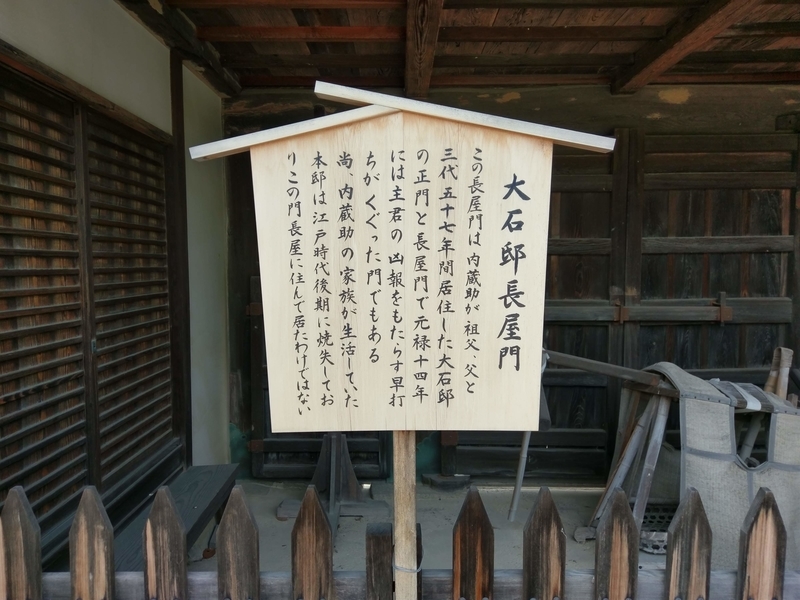 大石邸長屋門
この長屋門は内蔵助が祖父、父と
三代五十七年間居住した大石邸
の正門と長屋門で元禄十四年
には主君の凶報をもたらす早打
ちがくぐった門でもある
尚、内蔵助の家族が生活していた
本邸は江戸時代後期に焼失してお
りこの門長屋に住んで居たわけではない